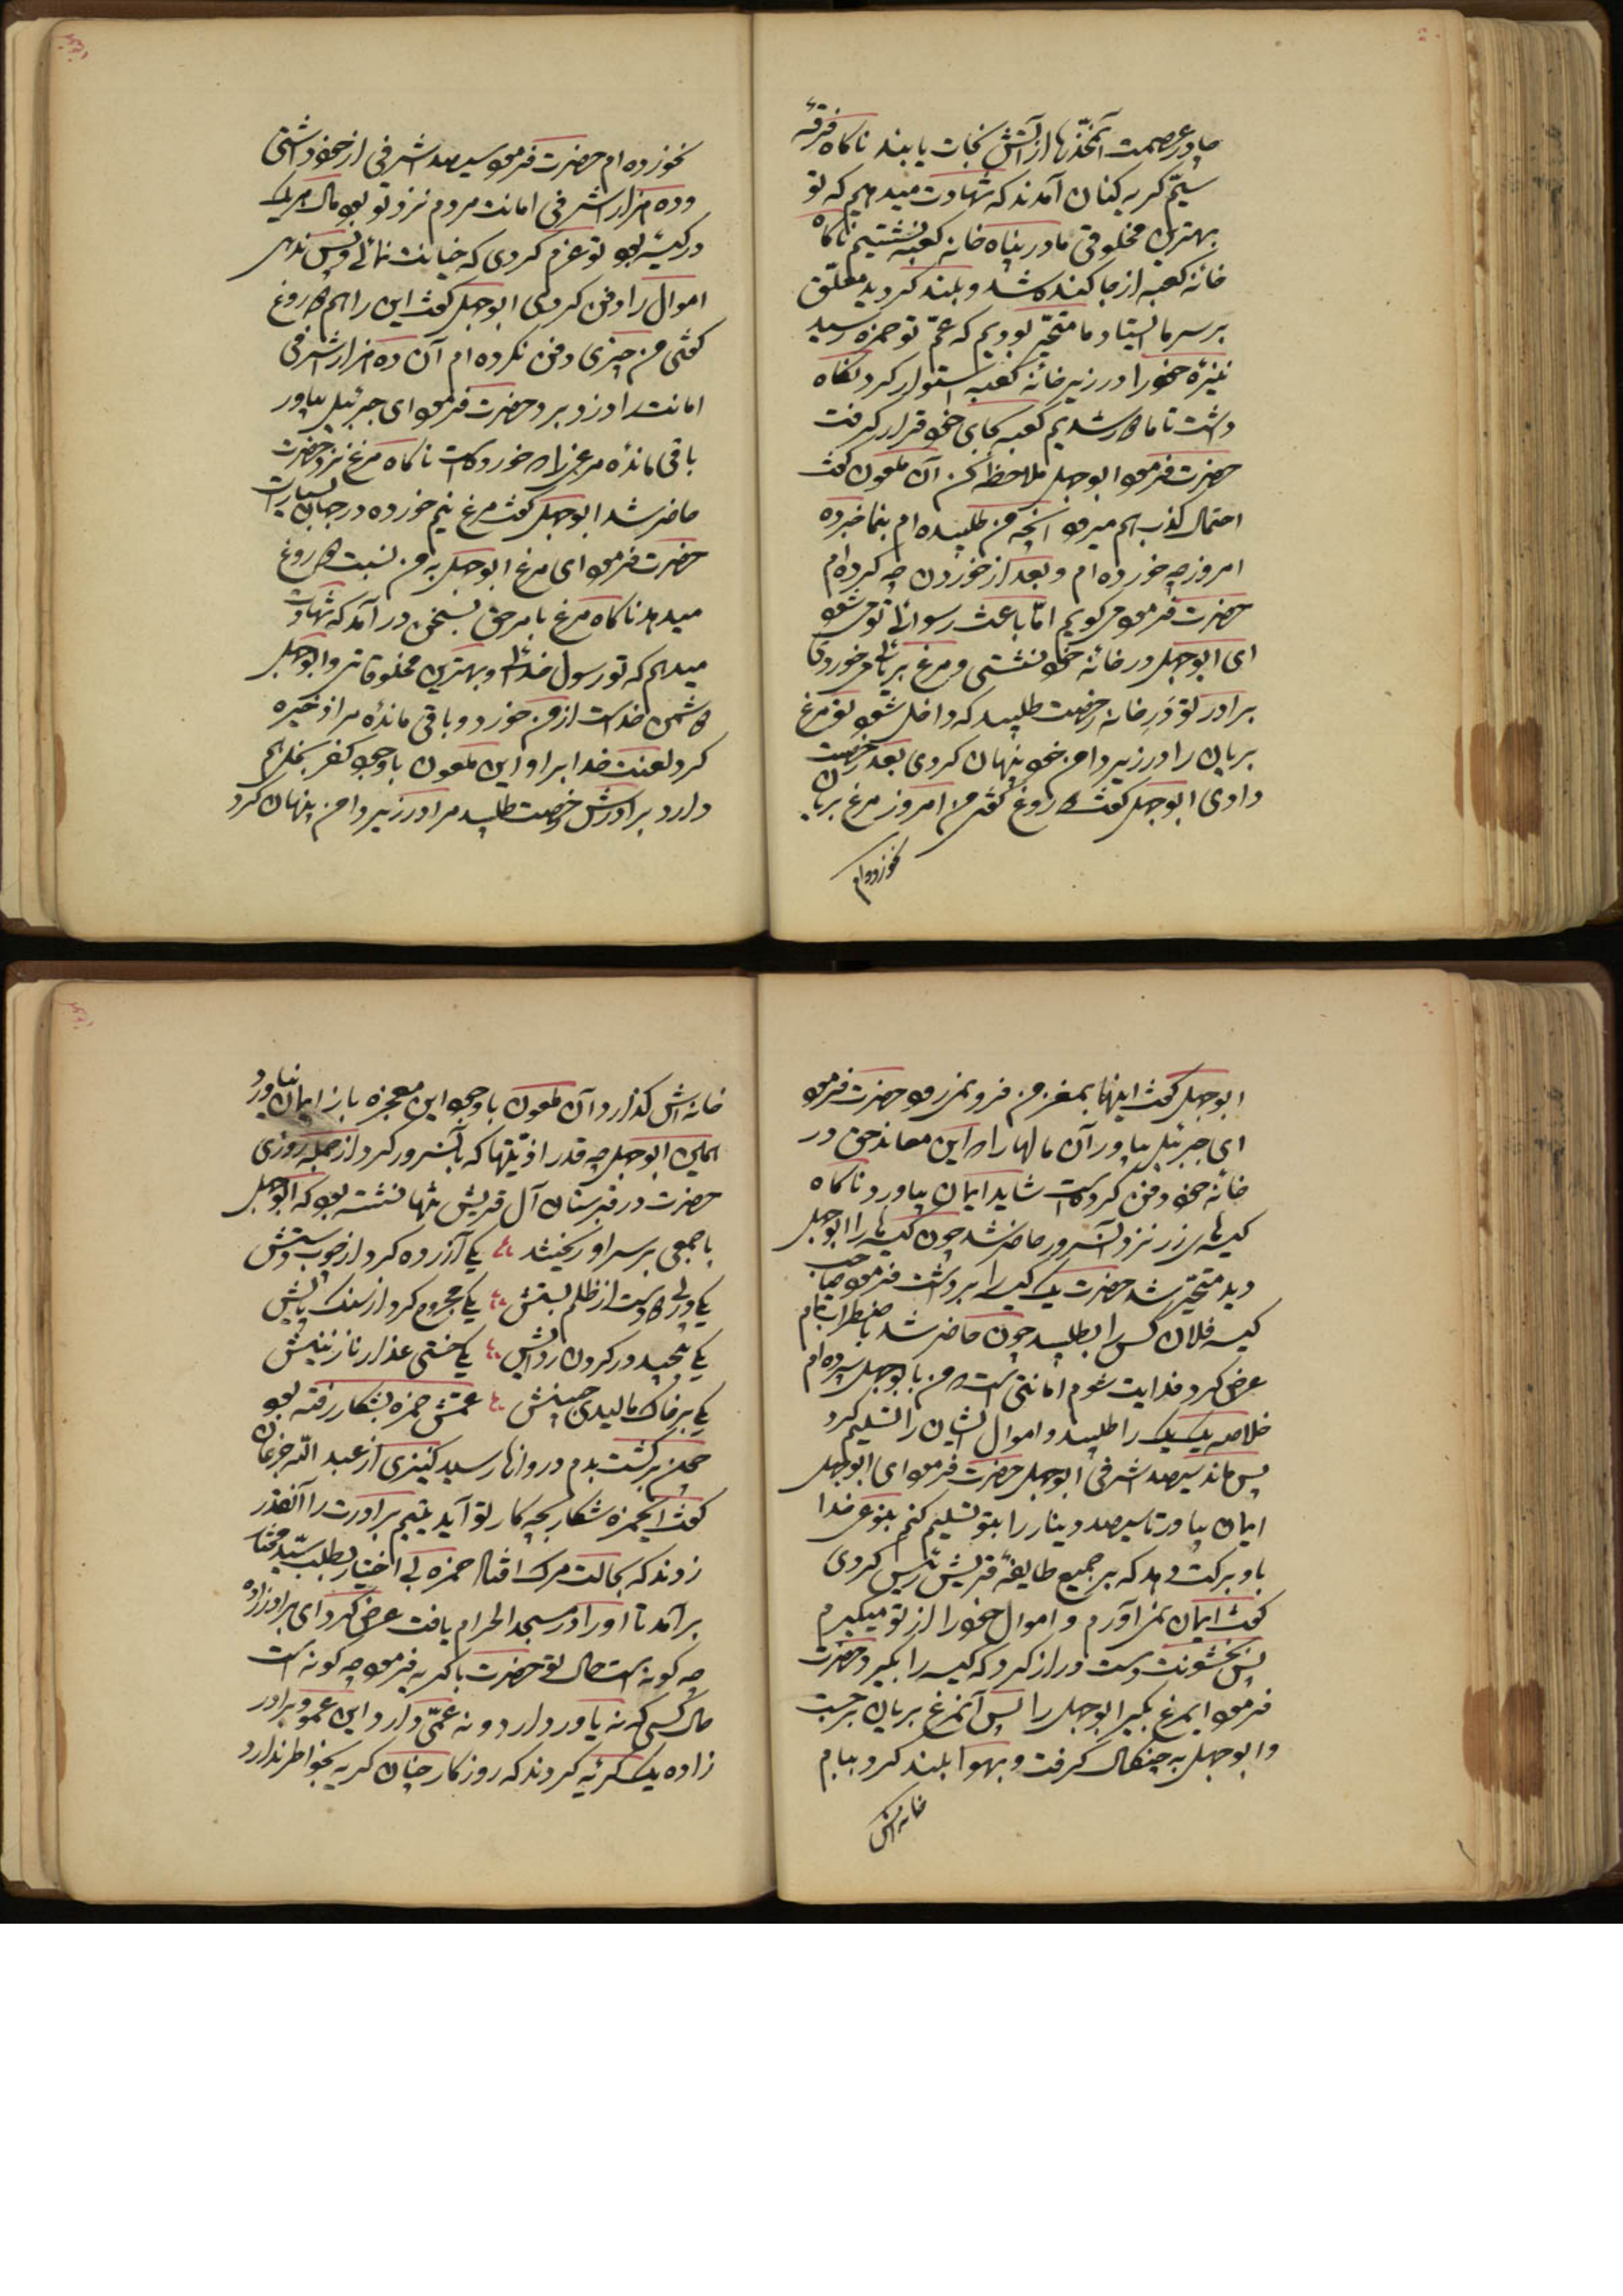 چادر عصمت آنمخدّرها از آتش نجات یابند ناکاه فرقهٔ
سیّم کریه کنان آمدند که شهادت میدهیم که تو
بهترین مخلوقی ما در پناه خانه کعبه نشستیم ناکاه
خانه کعبه از جا کنده شد و بلند کردید معلّق
بر سر ما ایستاد ما متحیّر بودیم که عمّ تو حمزه رسید
نیزهٔ خود را در زیر خانه کعبه استوار کرد نکاه
داشت تا ما دور شدیم کعبه بجای خود قرار کرفت
حضرت فرمود ابوجهل ملاحظه کن آن ملعون کفت
احتمال کذب هم میرود آنچه من طلبیده ام بنما خبر ده
امروز چه خورده ام و بعد از خوردن چه کرده ام
حضرت فرمود میکویم امّا باعث رسوائی تو میشود
ای ابوجهل در خانه خود نشستی و مرغ بریانی میخوردی
برادر تو در خانه رخصت طلبید که داخل شود تو مرغ
بریان را در زیر دامن خود پنهان کردی بعد رخصت
دادی ابوجهل کفت دروغ کفتی من امروز مرغ بریان
نخورده ام
نخورده ام حضرت فرمود سیصد اشرفی از خود داشتی
و ده هزار اشرفی امانت مردم نزد تو بود مال هر یک
در کیسه بود تو عزم کردی که خیانت نمائی و پس ندهی
اموال را دفن کردی ابوجهل کفت این را هم دروغ
کفتی من چیزی دفن نکرده ام آن ده هزار اشرفی
امانت را دزد برد حضرت فرمود ای جبرئیل بیاور
باقی مانده مرغی را که خورده است ناکاه مرغ نزد حضرت
حاضر شد ابوجهل کفت مرغ نیم خورده در جهان بسیار است
حضرت فرمود ای مرغ ابوجهل به من نسبت دروغ
میدهد ناکاه مرغ بامر حق بسخن در آمد که شهادت
میدهم که تو رسول خدائی و بهترین مخلوقاتی و ابوجهل
دشمن خداست از من خورد و باقی مانده مرا ذخیره
کرد لعنت خدا بر او این ملعون با وجود کفر بخل هم
دارد برادرش رخصت طلبید مرا در زیر دامن پنهان کرد
ابوجهل کفت اینها بمغز من فرو نمیرود حضرت فرمود
ای جبرئیل بیاور آن مالها را که این معاند حق در
خانه خود دفن کرده است شاید ایمان بیاورد ناکاه
کیسه های زر نزد آنسرور حاضر شد چون کیسه ها را ابوجهل
دید متحیّر شد حضرت یک کیسه را برداشت فرمود صاحب
کیسه فلان کس را بطلبید چون حاضر شد باضطراب تمام
عرض کرد فدایت شوم امانتی است که من بابوجهل سپرده ام
خلاصه یک یک را طلبید و اموال ایشان را تسلیم کرد
پس ماند سیصد اشرفی ابوجهل حضرت فرمود ای ابوجهل
ایمان بیاور تا سیصد دینار را بتو تسلیم کنم بنوعی خدا
باو برکت دهد که بر جمیع طایفه قریش رئیس کردی
کفت ایمان نمی آورم و اموال خود را از تو میکیرم
پس بخشونت دست دراز کرد که کیسه را بکیرد حضرت
فرمود ایمرغ بکیر ابوجهل را پس آنمرغ بریان برجست
و ابوجهل به چنکال کرفت و بهوا بلند کرد ببام
خانه اش
خانه اش کذارد آن ملعون با وجود این معجزه باز ایمان نیاورد
همین ابوجهل چه قدر اذیّتها که بآنسرور کرد از جمله روزی
حضرت در قبرستان آل قریش تنها نشسته بود که ابوجهل
با جمعی بر سر او ریختند یکی آزرده کرد از چوب دستش
یکی دو دست از ظلم بستش یکی مجروح کرد از سنک پایش
یکی پیچید در کردن ردایش یکی خستی عذار نازنینش
یکی بر خاک مالیدی جبینش عمّش حمزه بشکار رفته بود
چون برکشت بدم دروازه رسید کنیزی از عبد الله جزعان
کفت ایحمزه شکار بچه کار تو آید یتیم برادرت را آنقدر
زدند که بحالت مرک افتاد حمزه بی اختیار بطلب سیّد مختار
برآمد تا او را در مسجد الحرام یافت عرض کرد ای برادرزاده
چه کونه است حال تو حضرت با کریه فرمود چه کونه است
حال کسی که نه یاور دارد و نه عمّی دارد این عمو و برادر
زاده یک کریه کردند که روزکار چنان کریه بخواطر ندارد